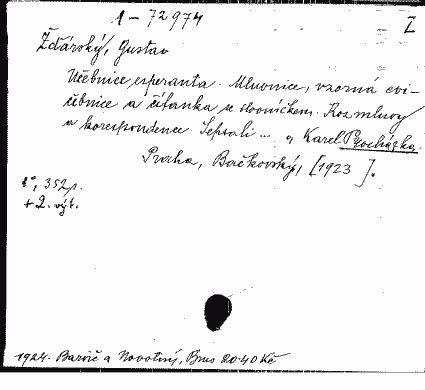 1-72974
Z
Žďárský, Gustav
Učebnice esperanta. Mluvnice, vzorná cvi-
čebnice a čítanka se slovníčkem. Rozmluvy
a korespondence. Sepsali ... a Karel Procházka.
Praha, Bačkovský, [1923].
1°, 352 p.
+ 2. výt.
1924. Barvič a Novotný, Brno 20.40 Kč